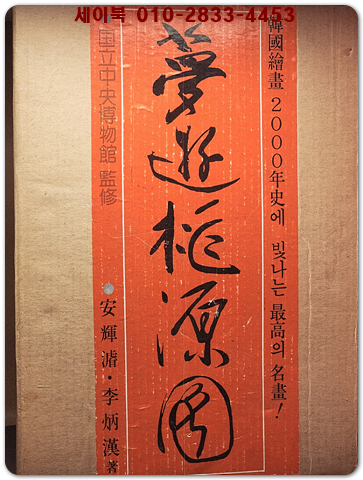 세이북 010-2833-4453
韓國繪畫 2000年史에 빛나는 最高의 名畫!
夢遊桃源図
国立中央博物館 監修
安輝濬·李炳漢 著